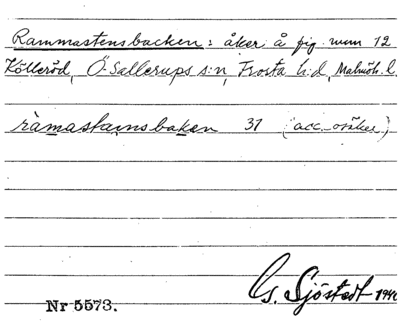 Rammastensbacken: åker å fig. num 12
Kölleröd, Ö. Sallerups s:n, Frosta h:d, Malmöh. l.
ràmastainsbaken 31 (acc. osäker)
G. Sjöstedt 1940
Nr 5573.